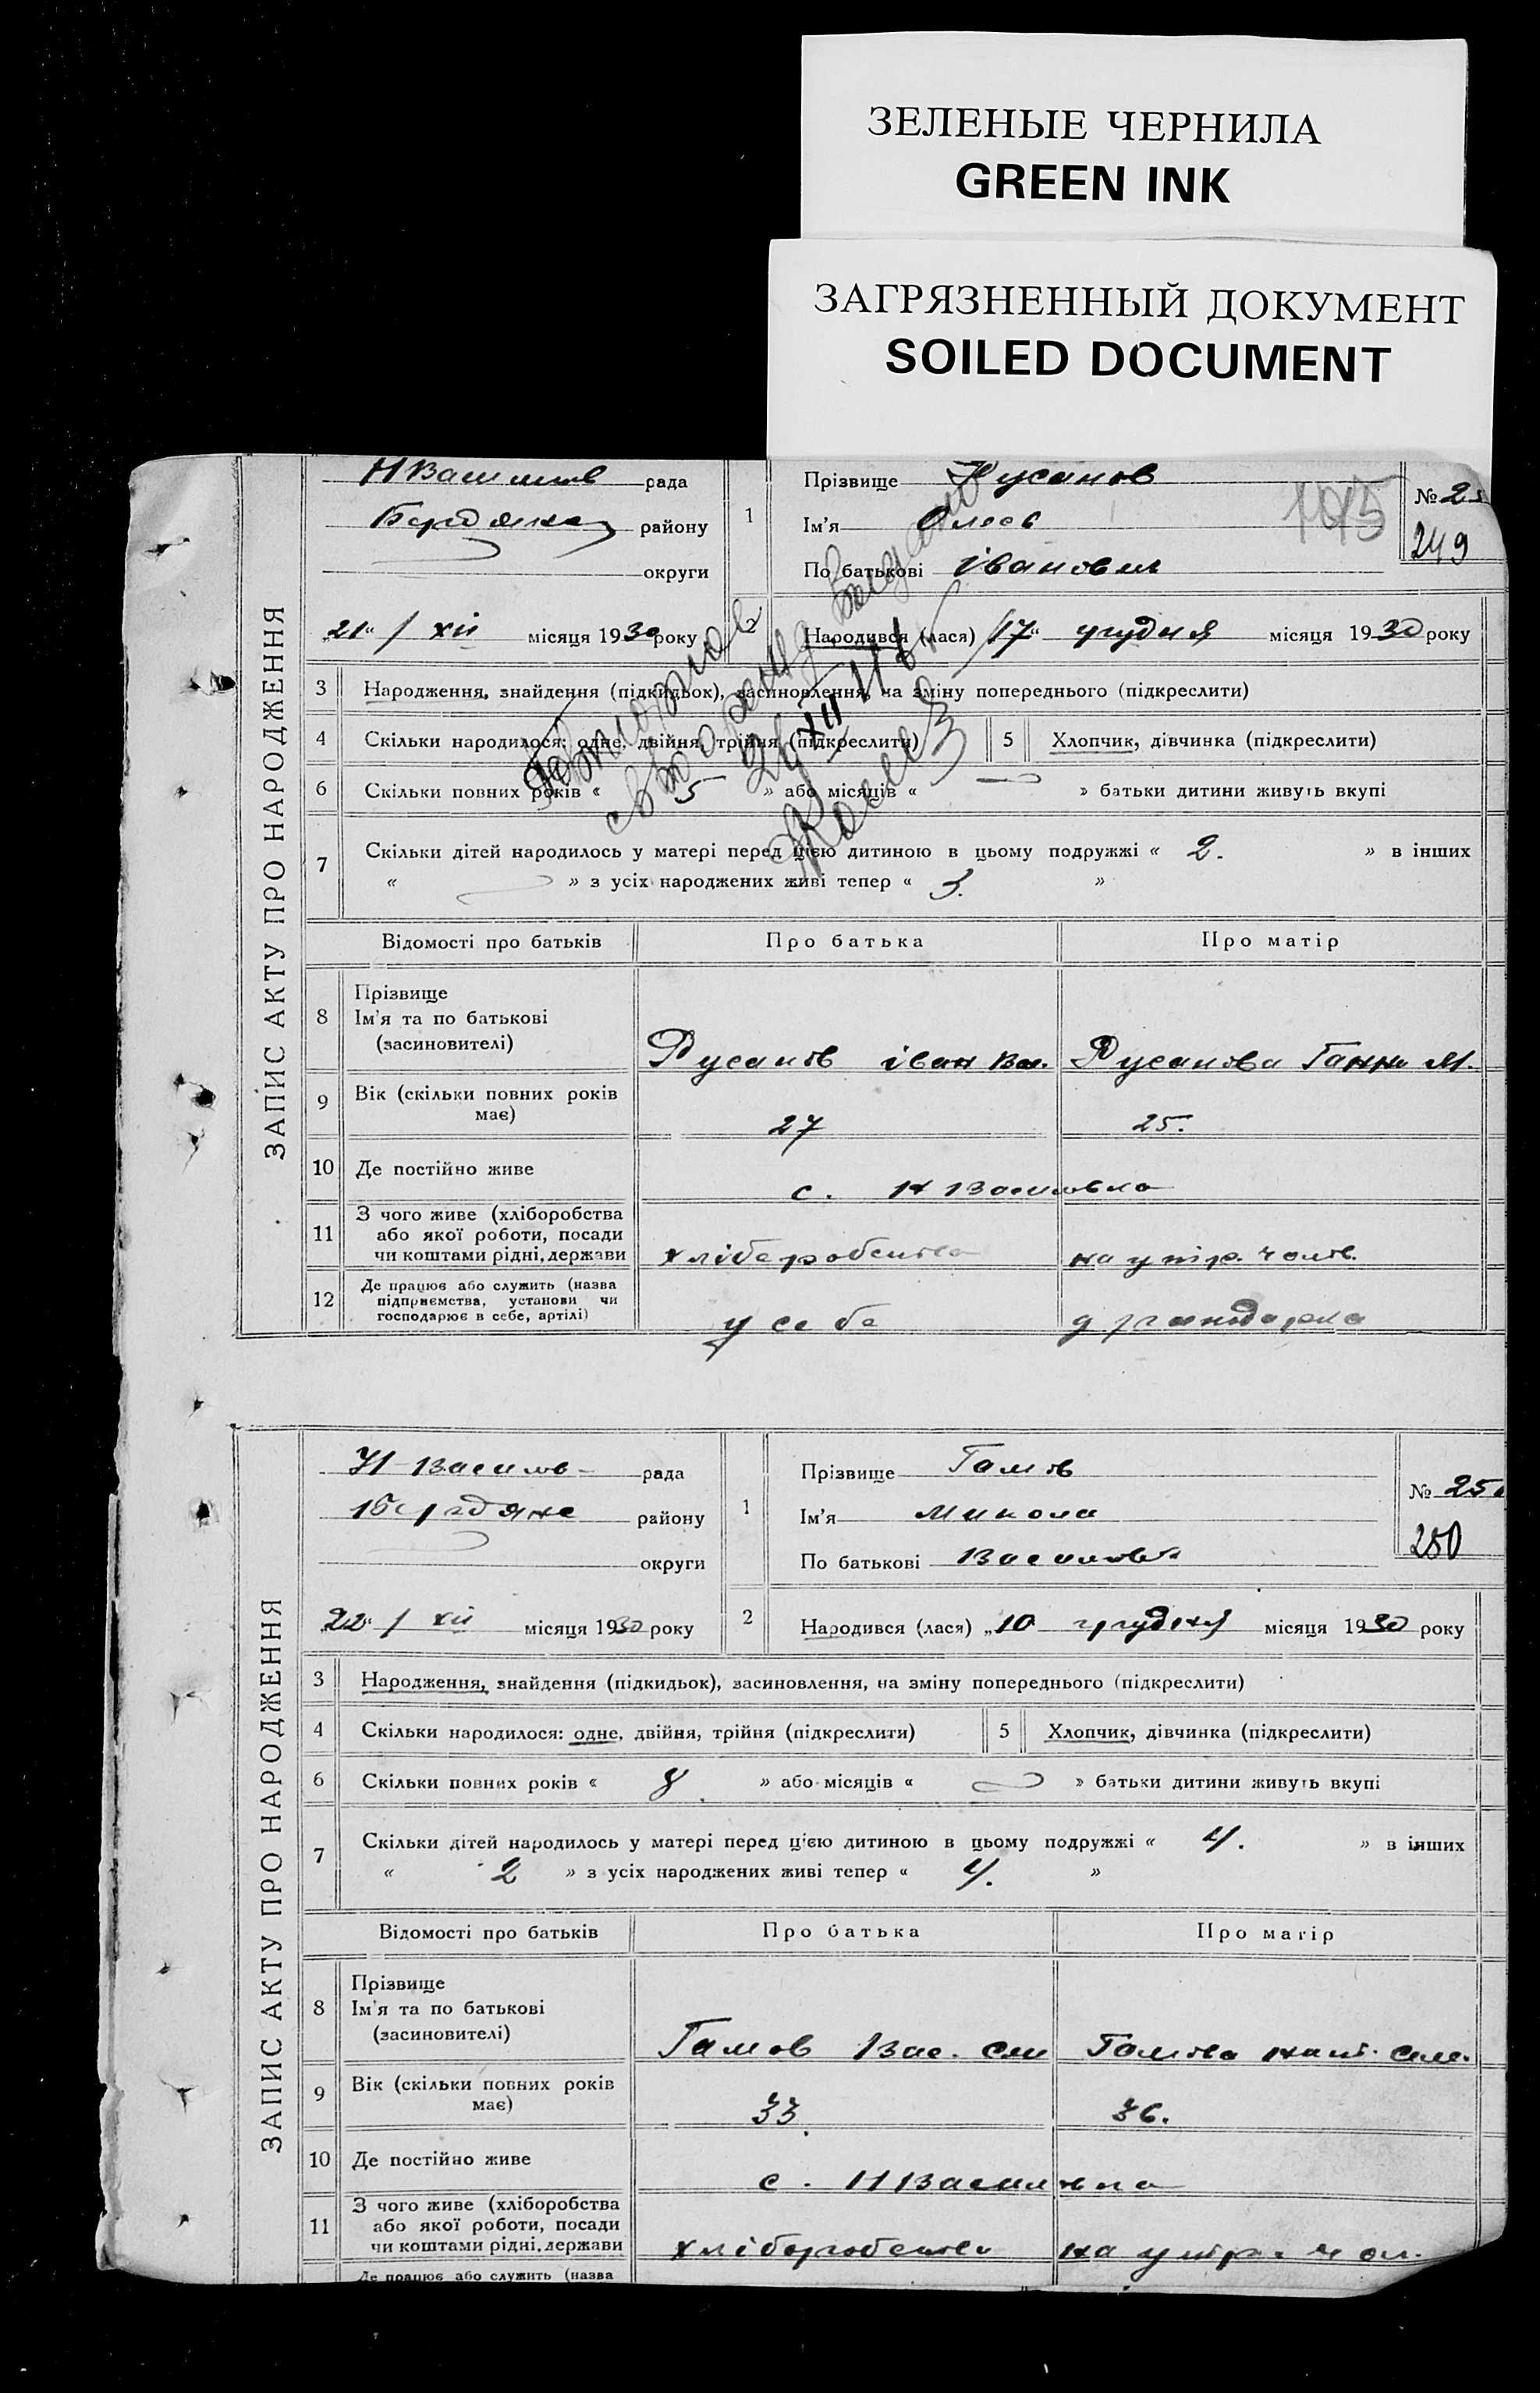 ЗЕЛЕНЫЕ ЧЕРНИЛА
GREEN INK
ЗАГРЯЗНЕННЫЙ ДОКУМЕНТ
SOILED DOCUMENT
ЗАПИС АКТУ ПРО НАРОДЖЕННЯ
рада
району
округи
21 / XII місяця 1930 року
1
Прізвище Русанов
Ім'я
По батькові Іванович
1015
№ 2
249
2
Народився (лася) „17" грудня місяця 1930 року
3 Народження, знайдення (підкидьок), засиновлення, на зміну попереднього (підкреслити)
4 Скільки народилося: одне, двійня, трійня (підкреслити)
5 Хлопчик, дівчинка (підкреслити)
6 Скільки повних років « 5 » або місяців « » батьки дитини живуть вкупі
7 Скільки дітей народилось у матері перед цією дитиною в цьому подружжі « 2. » в інших
« » з усіх народжених живі тепер « 3. »
Повторное
свидет. выдано
Відомості про батьків Про батька Про матір
8 Прізвище
Ім'я та по батькові
(засиновителі)
Русанов Іван Вас. Русанова Ганна М.
9 Вік (скільки повних років
має)
27 25.
10 Де постійно живе
с. Н Василівка
11 З чого живе (хліборобства
або якої роботи, посади
чи коштами рідні, держави
хліборобство на утр. чолов.
12 Де працює або служить (назва
підприємства, установи чи
господарює в себе, артілі)
у себе
ЗАПИС АКТУ ПРО НАРОДЖЕННЯ
Н-Василів- рада
району
округи
22 / XII місяця 1930 року
1
Прізвище Гамов
Ім'я Микола
По батькові Васильов.
№ 250
250
2
Народився (лася) „10 грудня місяця 1930 року
3 Народження, знайдення (підкидьок), засиновлення, на зміну попереднього (підкреслити)
4 Скільки народилося: одне, двійня, трійня (підкреслити)
5 Хлопчик, дівчинка (підкреслити)
6 Скільки повних років « 8 » або місяців « » батьки дитини живуть вкупі
7 Скільки дітей народилось у матері перед цією дитиною в цьому подружжі « 4. » в інших
« 2 » з усіх народжених живі тепер « 4. »
Відомості про батьків Про батька Про матір
8 Прізвище
Ім'я та по батькові
(засиновителі)
Гамов Вас. Сем Гамова Сем.
9 Вік (скільки повних років
має)
33 36.
10 Де постійно живе
с. Н Василівка
11 З чого живе (хліборобства
або якої роботи, посади
чи коштами рідні, держави
хліборобство на утр. чол.
Де працює або служить (назва